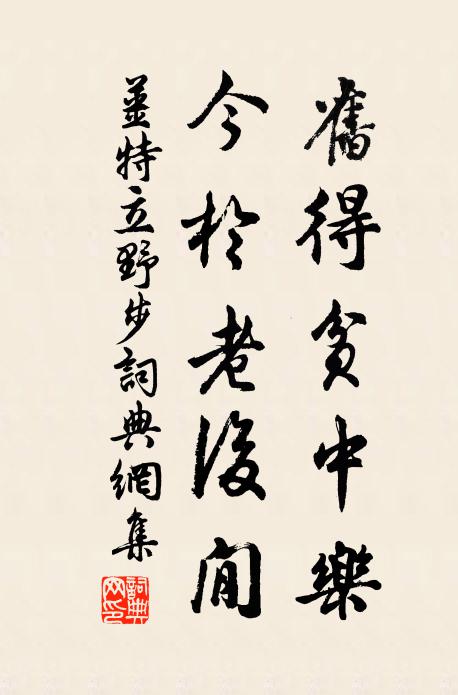 舊得貧中樂
今於老後閒
姜特立野步詞典網集
詞典網印